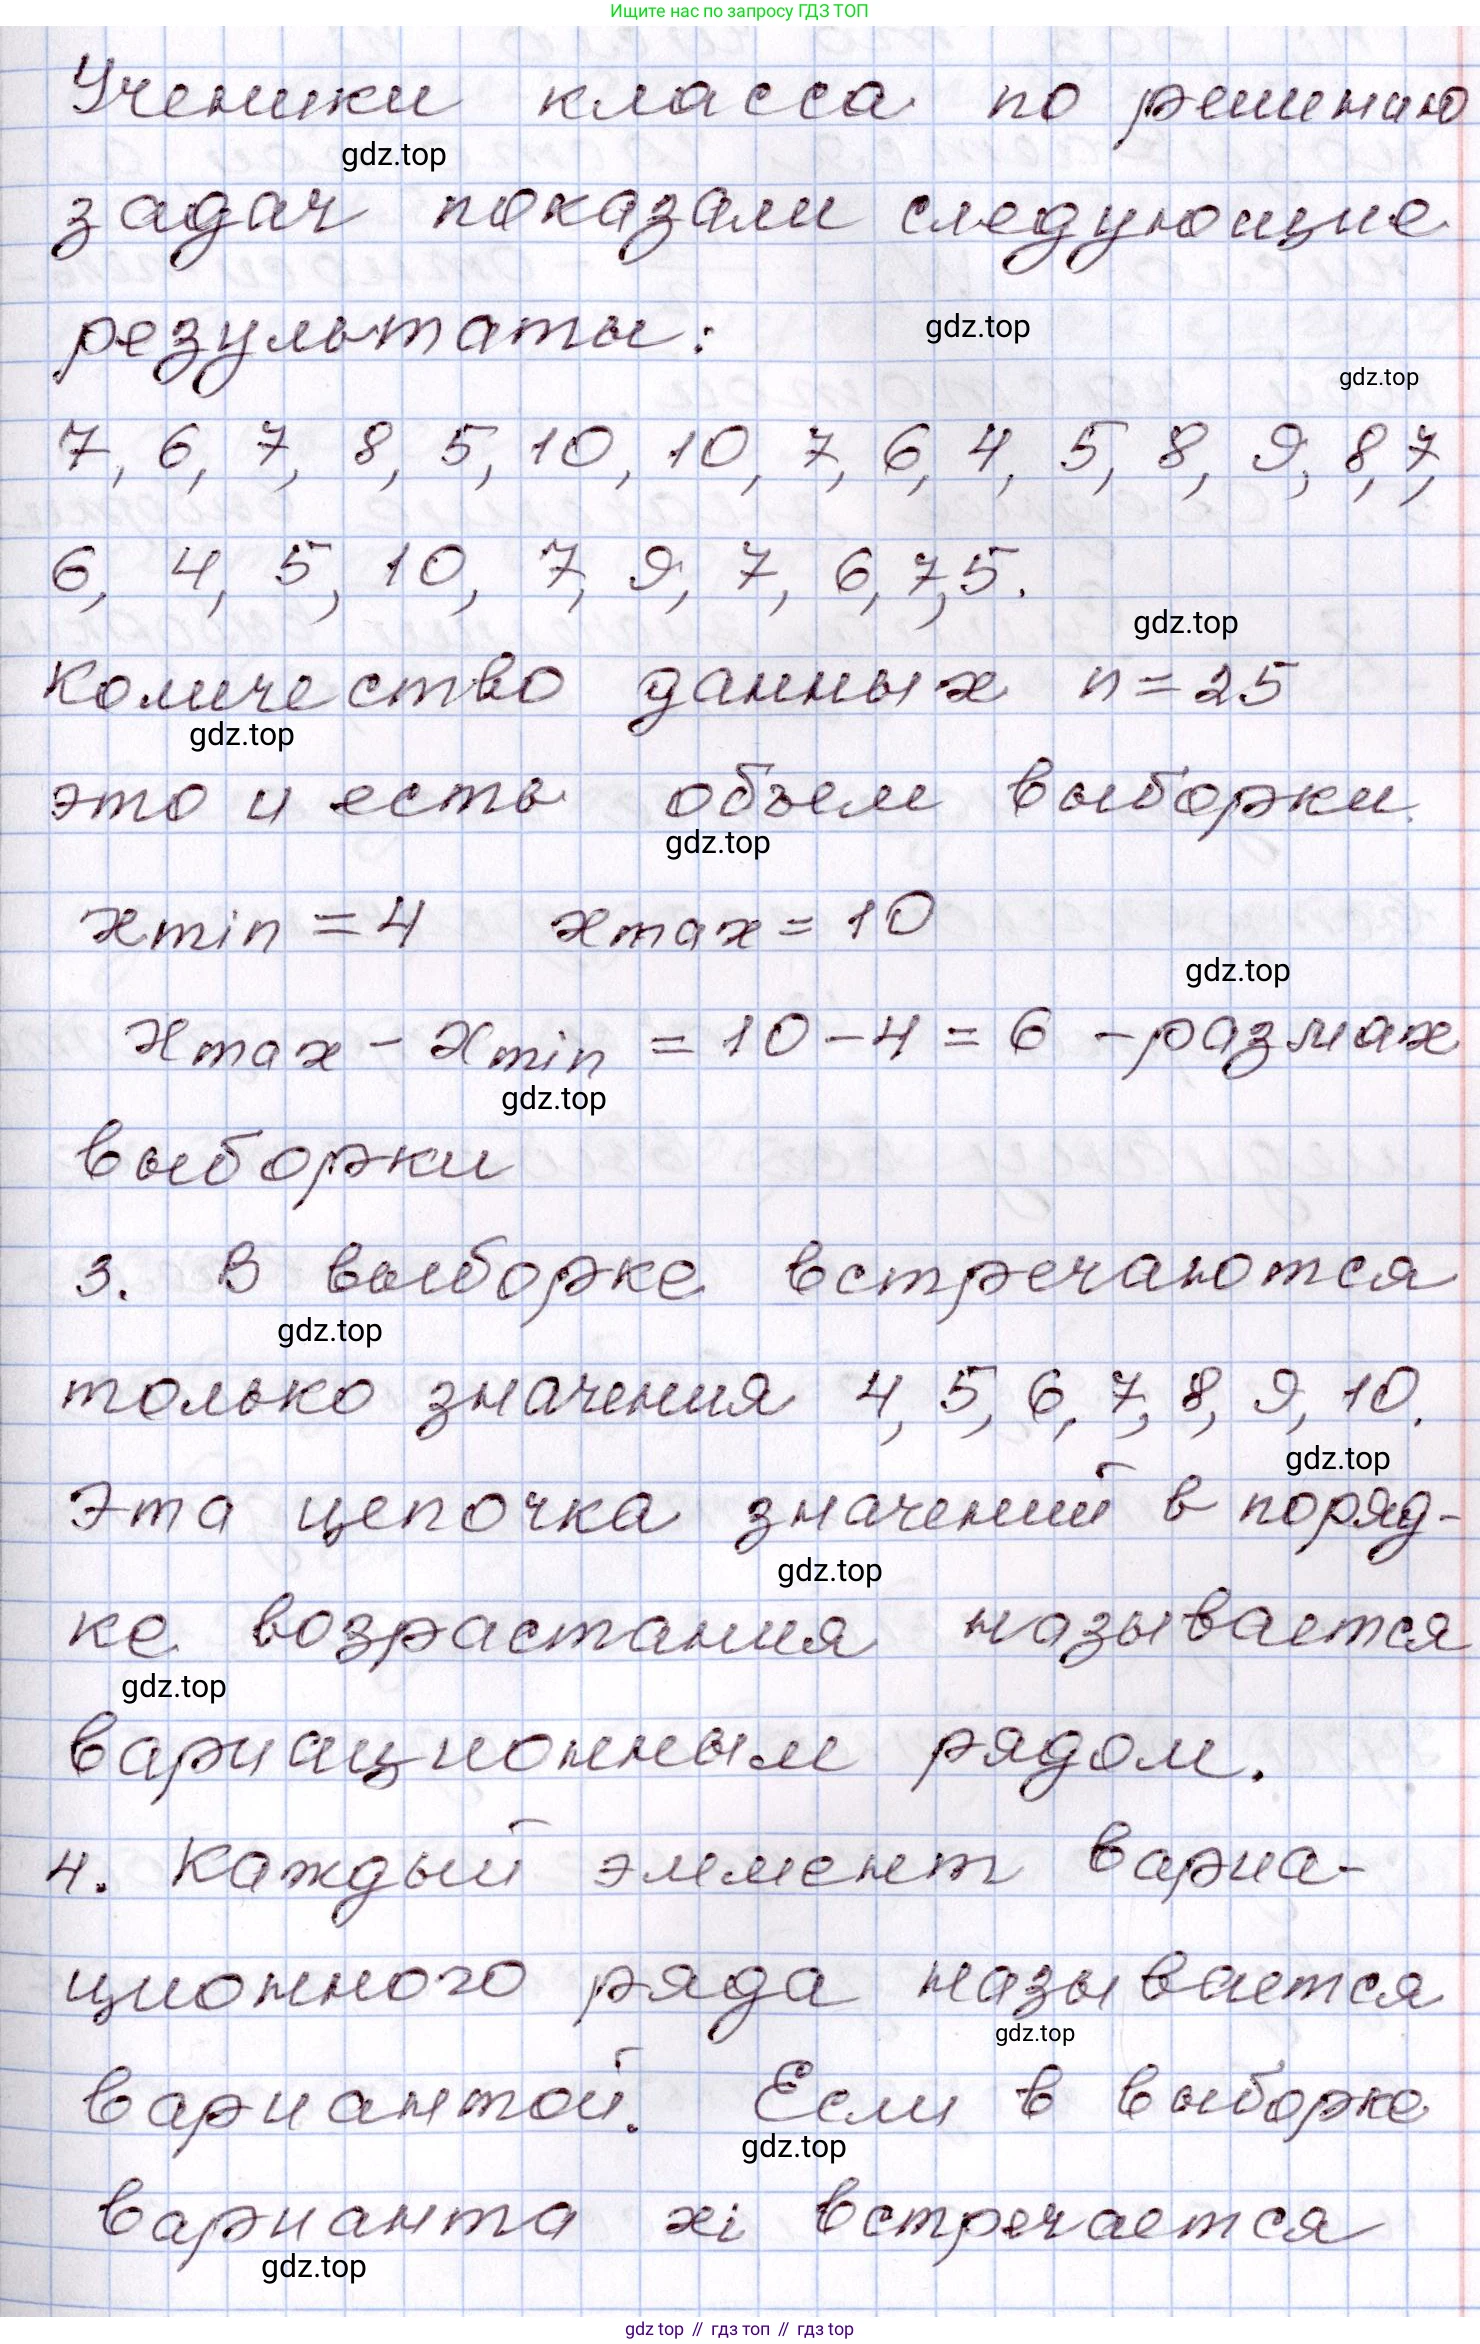 Ищите нас по запросу ГДЗ ТОП
Ученики класса по решению
gdz.top
задач показали следующие
результаты:
gdz.top
gdz.top
7, 6, 7, 8, 5, 10, 10, 7, 6, 4, 5, 8, 9, 8, 7,
6, 4, 5, 10, 7, 9, 7, 6, 7, 5.
gdz.top
количество данных n=25
gdz.top
это и есть объем выборки.
gdz.top
xmin = 4 xmax = 10
gdz.top
xmax - xmin = 10 - 4 = 6 - размах
gdz.top
выборки
3. В выборке встречаются
gdz.top
только значения 4, 5, 6, 7, 8, 9, 10.
gdz.top
Эта цепочка значений в поряд-
gdz.top
ке возрастания называется
gdz.top
вариационным рядом.
4. Каждый элемент вариа-
ционного ряда называется
gdz.top
вариантой. Если в выборке
gdz.top
варианта xi встречается
gdz.top
gdz top // гдз топ // гдз top